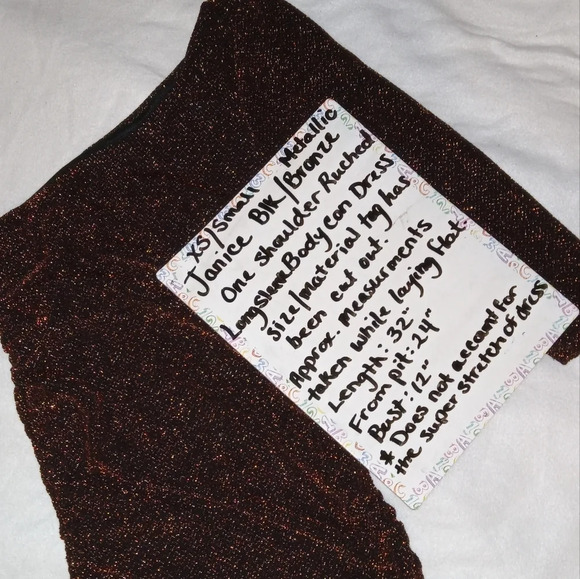 XS/Small Metallic
Janice Blk/Bronze
One Shoulder Ruched
Longsleeve Body Con Dress
size/material tag has
been cut out.
Approx. measurments
taken while laying flat.
Length: 32"
From pit: 24"
Bust: 12"
* Does not account for
the super stretch of dress